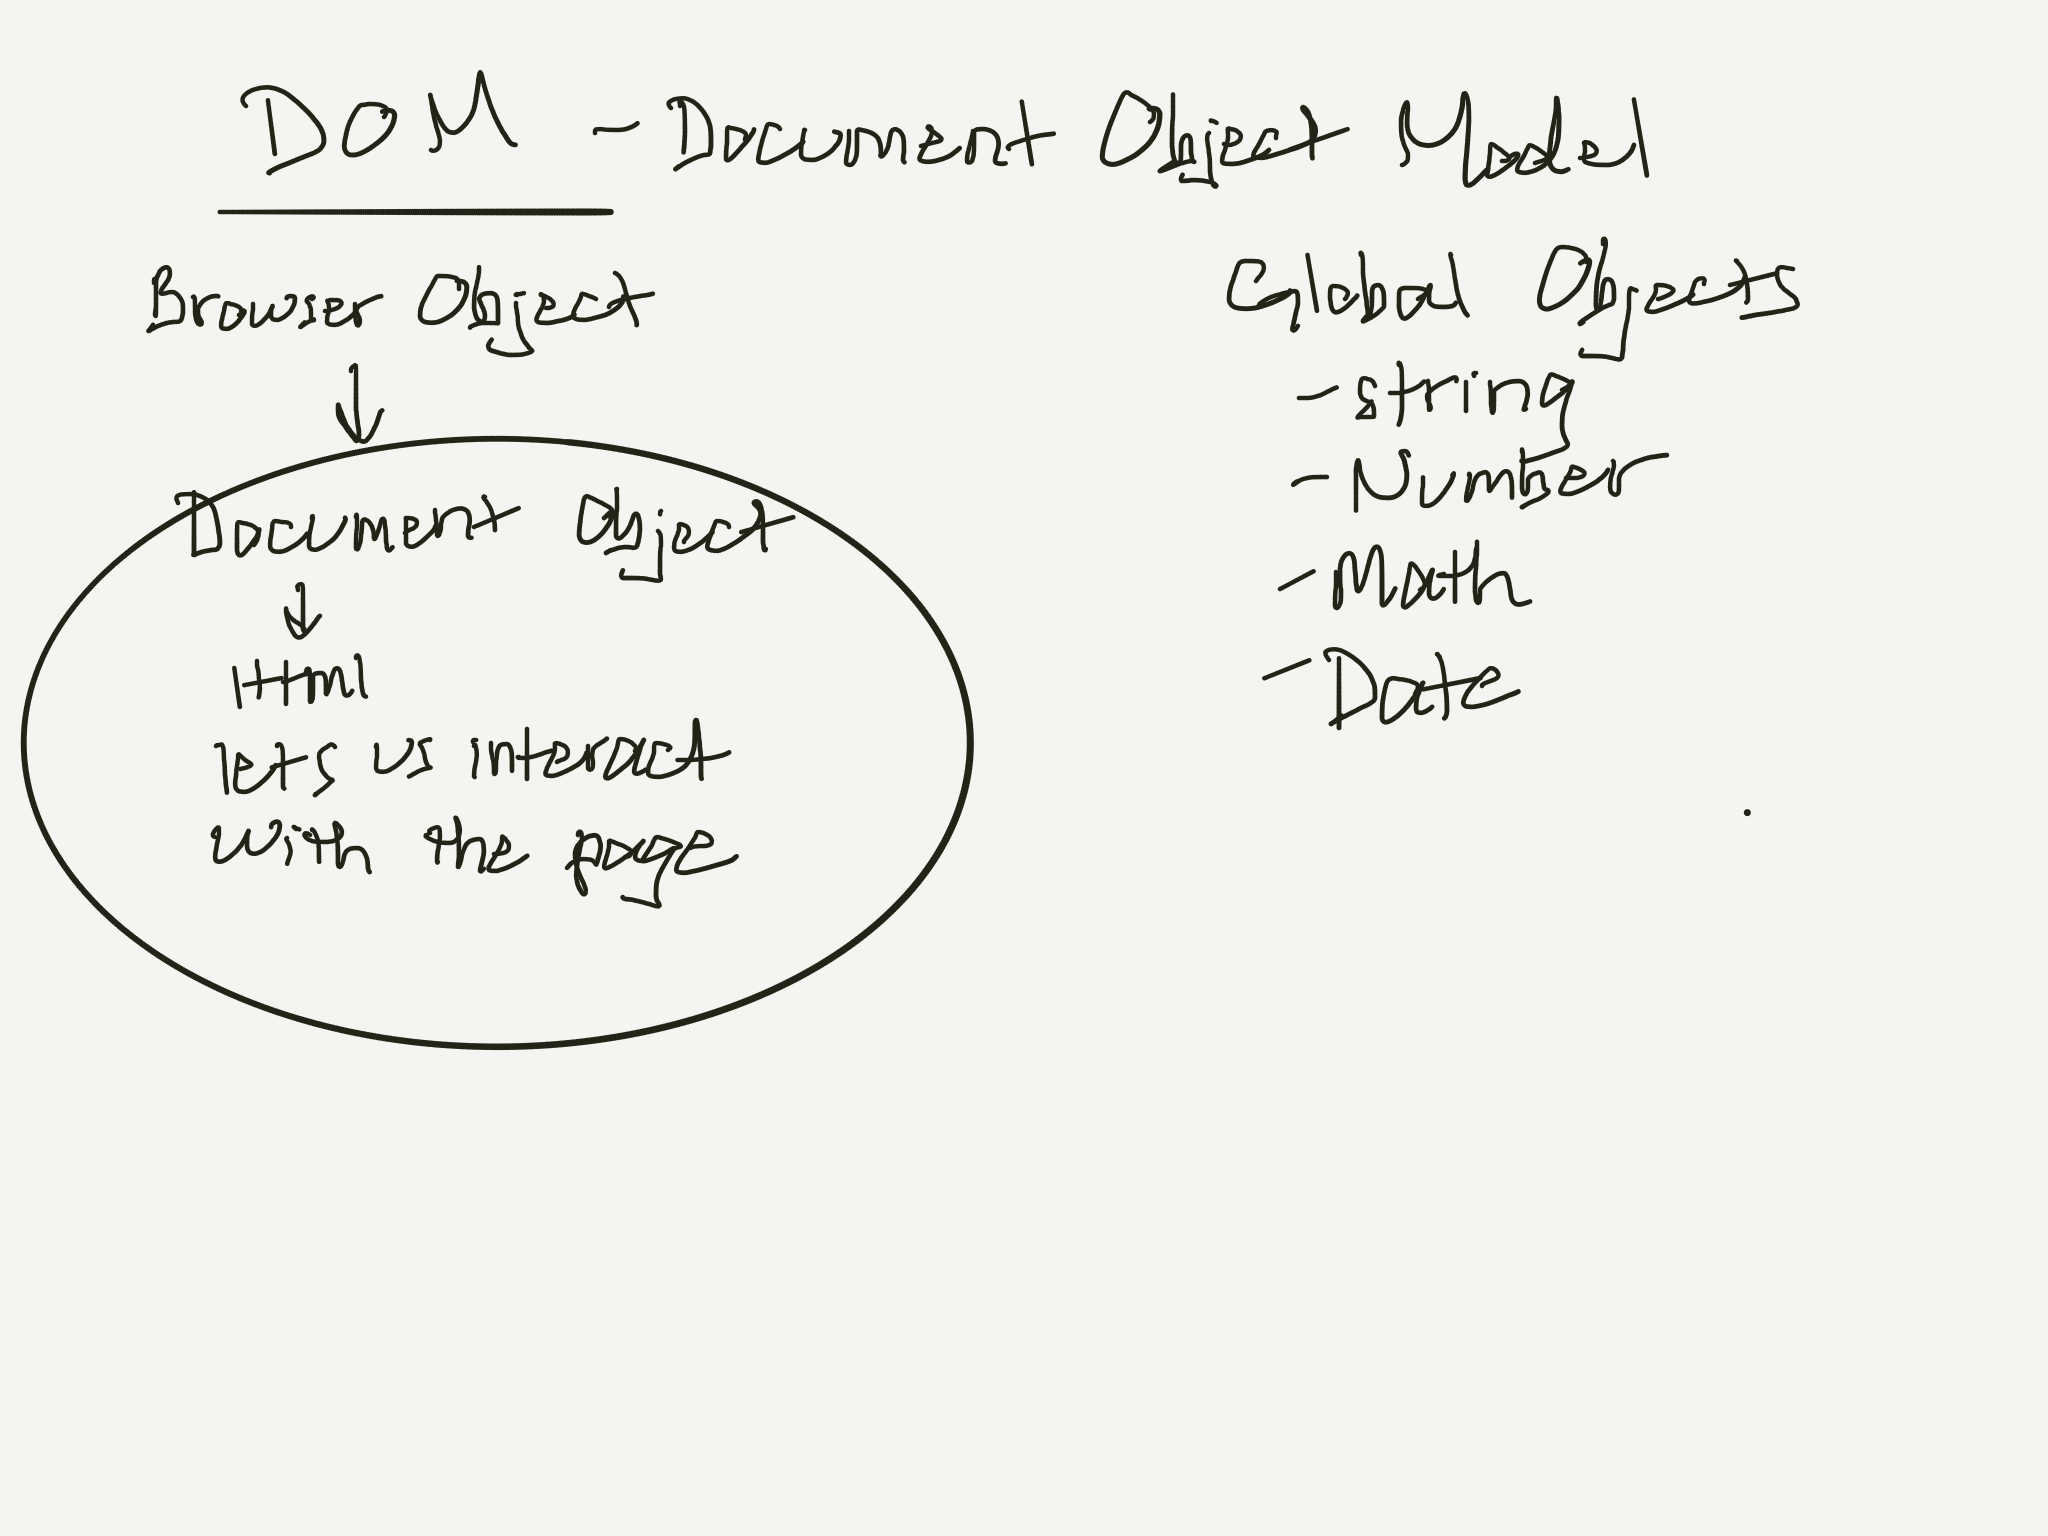 DOM - Document Object Model
Browser Object
Document Object
Html
lets us interact
with the page
Global Objects
- string
- Number
- Math
- Date